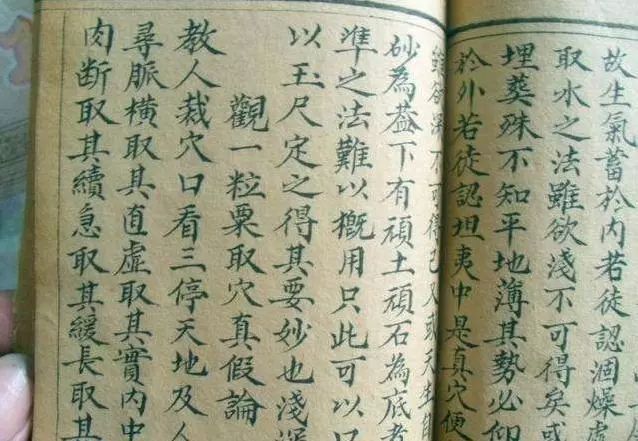 故生氣蓄於內若徒認涸燥
取水之法雖欲淺不可得矣或
埋葬殊不知平地薄其勢必仰
於外若徒認坦夷中是真穴便
深不可得已又或天生自
砂為葢下有頑土頑石為底者
準之法難以概用只此可以口
以玉尺定之得其要妙也淺深
觀一粒粟取穴真假論
教人裁穴口看三停天地及人
尋脈橫取其直虛取其實肉中
肉断取其續急取其緩長取其